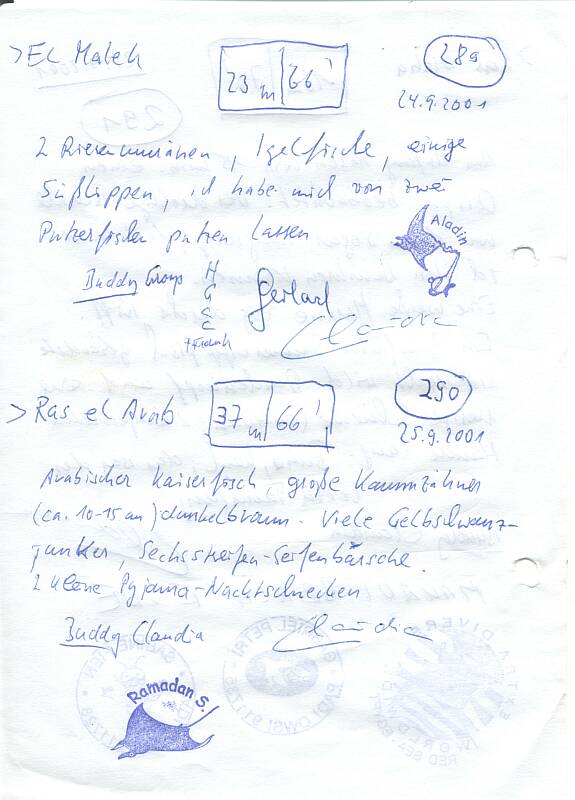 > El Malek
23 m | 66'
289
24.9.2001
2 Riesenmuränen, Igelfische, einige
Süßlippen, ich habe mich von zwei
Putzerfischen putzen lassen
Aladin
Buddy Group H
G
Gerhard
Claudia
> Ras el Arab
37 m | 66'
290
25.9.2001
Arabischer Kaiserfisch, große Kammzähner
(ca. 10-15 cm) dunkelbraun. Viele Gelbschwanz-
junker, Sechsstreifen-Seifenbarsche.
2 kleine Pyjama-Nachtschnecken
Buddy Claudia
Claudia
Ramadan S.